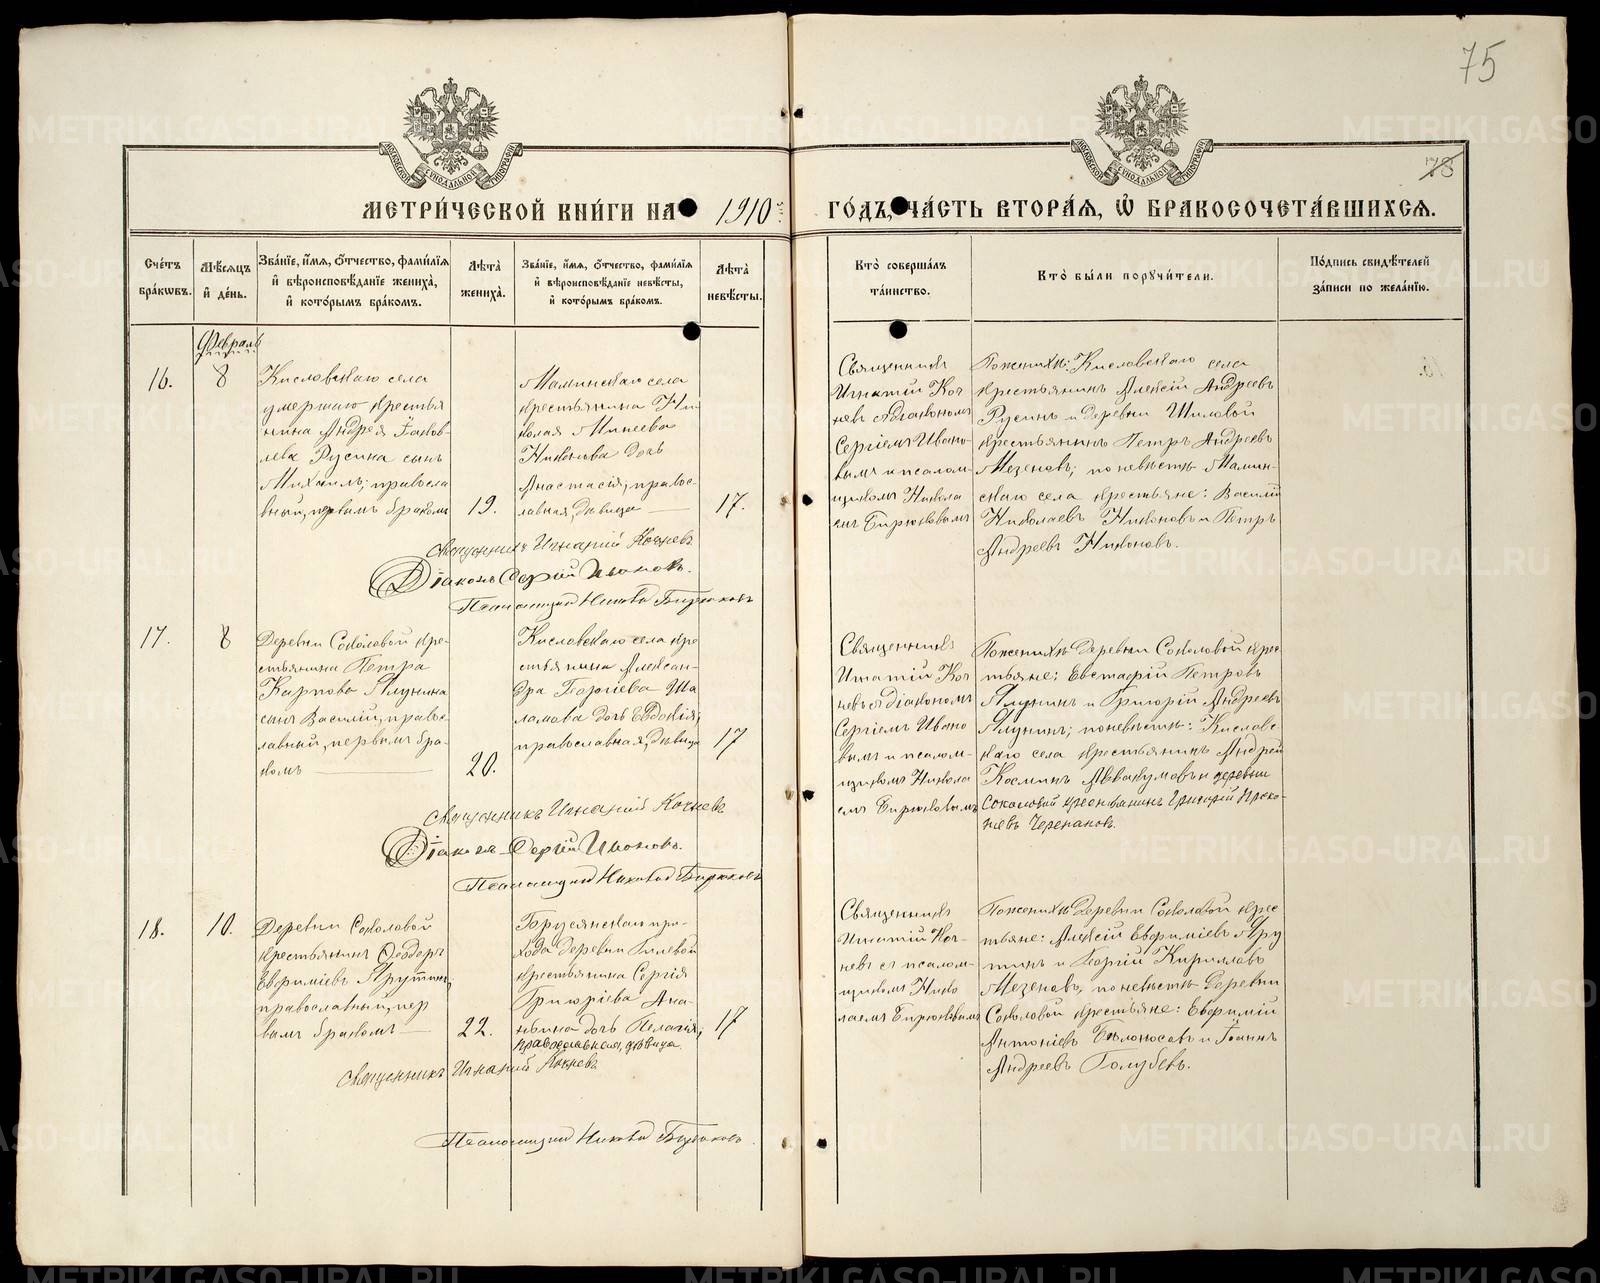 75
78
МОСКОВСКОЙ СѴНОДАЛЬНОЙ ТИПОГРАФІИ
МОСКОВСКОЙ СѴНОДАЛЬНОЙ ТИПОГРАФІИ
МЕТРИ́ЧЕСКОЙ КНИ́ГИ НА 1910 ГО́ДЪ, ЧА́СТЬ ВТОРА́Я, Ѡ БРАКОСОЧЕТА́ВШИХСЯ.
Сче́тъ
бра́кѡвъ.
Мѣ́сяцъ
и҆ де́нь.
Зва́нїе, и҆́мѧ, ѻ҆́тчество, фами́лїѧ
и҆ вѣроисповѣ́данїе жениха̀,
и҆ кото́рымъ бра́комъ.
Лѣ́та
жениха̀.
Зва́нїе, и҆́мѧ, ѻ҆́тчество, фами́лїѧ
и҆ вѣроисповѣ́данїе невѣ́сты,
и҆ кото́рымъ бра́комъ.
Лѣ́та
невѣ́сты.
Кто̀ соверша́лъ
та́инство.
Кто̀ бы́ли порꙋчи́тели.
По́дпись свидѣ́телей
за́писи по жела́нїю.
Февраль
16.
8
Кисловскаго села
умершаго крестья
нина Андрея Іаков-
лева Русина сынъ
Михаилъ; правосла
вный, первымъ бракомъ
19.
Маминскаго села
крестьянина Ни
колая Минеева
Никонова дочь
Анастасія, правос-
лавная, дѣвица
17.
Священникъ
Игнатій Коч
невъ съ діакономъ
Сергіемъ Ивано-
вымъ и псалом-
щикомъ Никола
емъ Бирюковымъ
По женихѣ: Кисловскаго села
крестьянинъ Алексій Андреевъ
Русинъ и деревни Шиловой
крестьянинъ Петръ Андреевъ
Мезеновъ; по невѣстѣ Мамин-
скаго села крестьяне: Василій
Николаевъ Никоновъ и Петръ
Андреевъ Никоновъ.
Священникъ Игнатій Кочневъ
Діаконъ Сергій Ивановъ.
Псаломщикъ Николай Бирюковъ
17.
8
Деревни Соколовой кре-
стьянина Петра
Карпова Плунина
сынъ Василій, правос-
лавный, первымъ бра-
комъ
20.
Кисловскаго села кре
стьянина Алексан-
дра Георгіева Ша
ламова дочь Евдокія;
православная, дѣвица
17
Священникъ
Игнатій Коч
невъ съ діакономъ
Сергіемъ Ивано
вымъ и псалом-
щикомъ Никола
емъ Бирюковымъ
По женихѣ деревни Соколовой крес
тьяне: Евстафій Петровъ
Плунинъ и Григорій Андреевъ
Плунинъ; по невѣстѣ: Кисловс
каго села крестьянинъ Андрей
Косминъ Аввакумовъ и деревни
Соколовой крестьянинъ Григорій Проко
пьевъ Черепановъ.
Священникъ Игнатій Кочневъ
Діаконъ Сергій Ивановъ.
Псаломщикъ Николай Бирюковъ
18.
10.
Деревни Соколовой
крестьянинъ Ѳеодоръ
Евфиміевъ Прутинъ,
православный, пер
вымъ бракомъ
22.
Брусянскаго при-
хода деревни Гилевой
крестьянина Сергія
Григоріева Ана-
ньина дочь Пелагія;
православная, дѣвица.
17
Священникъ
Игнатій Коч-
невъ съ псалом-
щикомъ Нико
лаемъ Бирюковымъ
По женихѣ деревни Соколовой крес
тьяне: Алексій Евфиміевъ Пру
тинъ и Георгій Кириллов
Мезеновъ, по невѣстѣ деревни
Соколовой крестьяне: Евфимій
Антоніевъ Бѣлоносовъ и Іоаннъ
Андреевъ Голубевъ.
Священникъ Игнатій Кочневъ
Псаломщикъ Николай Бирюковъ.
METRIKI.GASO-URAL.RU